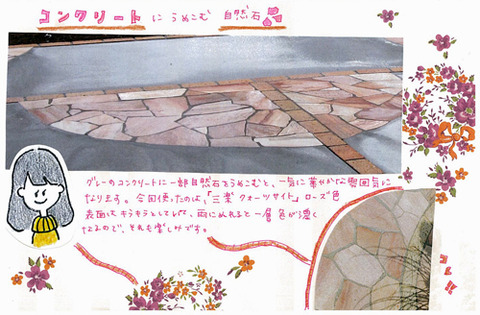 コンクリートにうめこむ 自然石
グレーのコンクリートに一部自然石をうめこむと、一気に華やかな雰囲気に
なります。今回使ったのは、「三楽 クォーツサイト」ローズ色
表面はキラキラとしてして、雨にぬれると一層色が濃く
なるので、それも楽しみです。